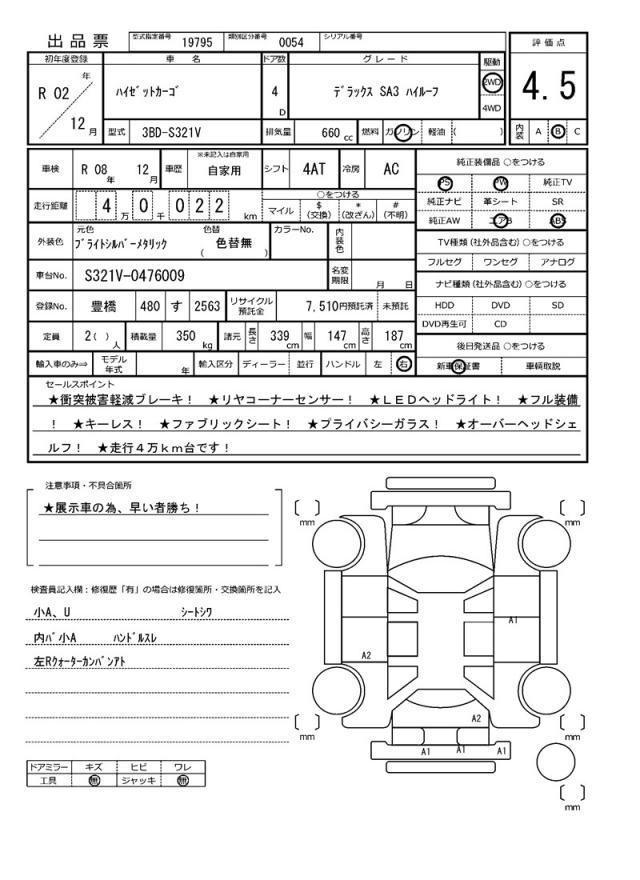 出品票 型式指定番号 19795 類別区分番号 0054 シリアル番号
初年度登録 車 名 ドア数 グレード 駆動 評価点
R 02 年 12 月 ハイゼットカーゴ 4 D デラックス SA3 ハイルーフ 2WD 4WD 4.5
型式 3BD-S321V 排気量 660 cc 燃料 ガソリン 軽油 ( ) 内装 A B C
車検 R 08 年 12 月 車歴 ※未記入は自家用 自家用 シフト 4AT 冷房 AC
走行距離 4 万 0 千 0 2 2 km ○をつける マイル $ (交換) * (改ざん) # (不明)
外装色 元色 ブライトシルバーメタリック 色替 ( 色替無 ) カラーNo. 内装色
車台No. S321V-0476009 名変期限 月 日
登録No. 豊橋 480 す 2563 リサイクル預託金 7,510円預託済 未預託
定員 2( ) 人 積載量 350 kg 諸元 長さ 339 cm 幅 147 cm 高さ 187 cm
輸入車のみ⇒ モデル年式 年 輸入区分 ディーラー 並行 ハンドル 左 右
純正装備品 ○をつける
PS PW 純正TV
純正ナビ 革シート SR
純正AW エアB ABS
TV種類 (社外品含む) ○をつける
フルセグ ワンセグ アナログ
ナビ種類 (社外品含む) ○をつける
HDD DVD SD
DVD再生可 CD
後日発送品 ○をつける
新車保証書 車輌取説
セールスポイント
★衝突被害軽減ブレーキ！ ★リヤコーナーセンサー！ ★ＬＥＤヘッドライト！ ★フル装備
！ ★キーレス！ ★ファブリックシート！ ★プライバシーガラス！ ★オーバーヘッドシェ
ルフ！ ★走行４万ｋｍ台です！
注意事項・不具合箇所
★展示車の為、早い者勝ち！
検査員記入欄：修復歴「有」の場合は修復箇所・交換箇所を記入
小A、U シートシワ
内ﾊﾞ小A ハンドルスレ
左Rクォーターカンバンアト
ドアミラー キズ ヒビ ワレ
工具 無 ジャッキ 無
[ ] mm [ ] mm
A1
A2
A2
[ ] mm [ ] mm
A1 A1 A1
[ ] mm